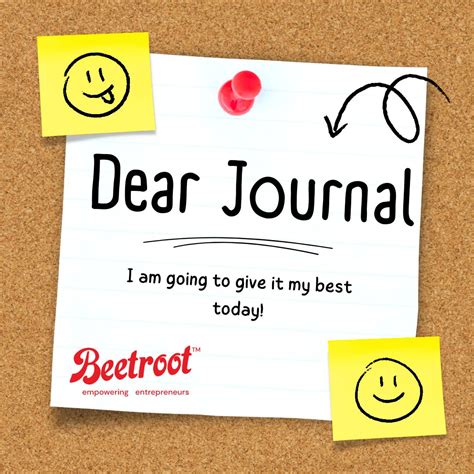 Dear Journal
I am going to give it my best
today!
Beetroot™
empowering entrepreneurs